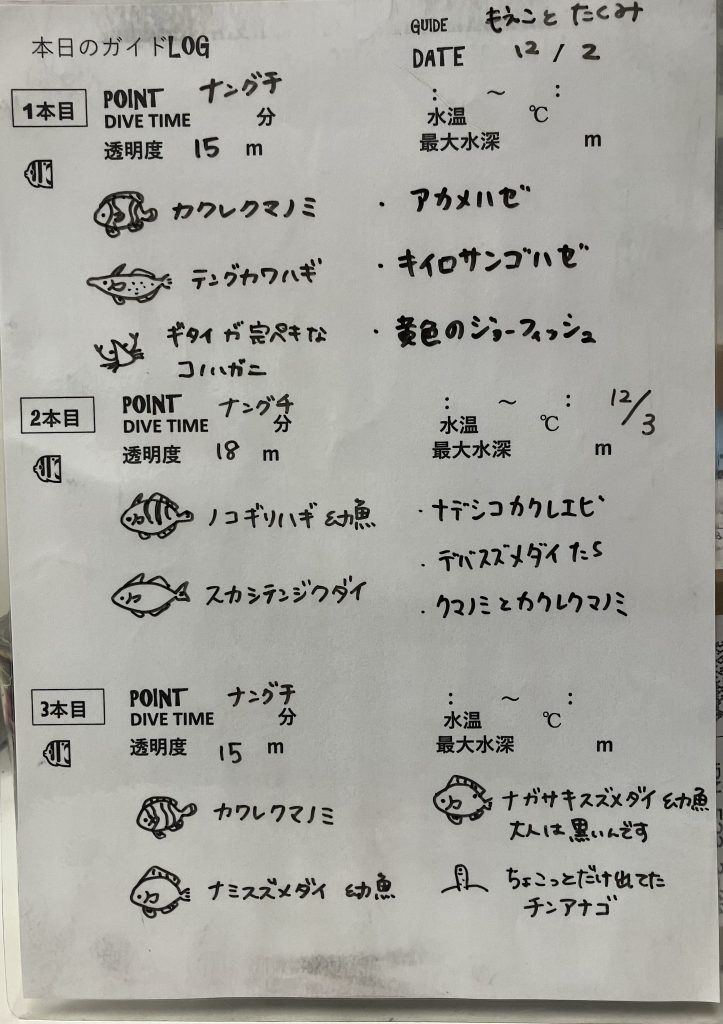 本日のガイドLOG
GUIDE もえこと たくみ
DATE 12 / 2
1本目
POINT ナングチ
DIVE TIME 分
透明度 15 m
: ～ :
水温 ℃
最大水深 m
カクレクマノミ
テングカワハギ
ギタイが完ペキな
コノハガニ
・アカメハゼ
・キイロサンゴハゼ
・黄色のジョーフィッシュ
2本目
POINT ナングチ
DIVE TIME 分
透明度 18 m
: ～ : 12/3
水温 ℃
最大水深 m
ノコギリハギ 幼魚
スカシテンジクダイ
・ナデシコカクレエビ
・デバスズメダイたち
・クマノミとカクレクマノミ
3本目
POINT ナングチ
DIVE TIME 分
透明度 15 m
: ～ :
水温 ℃
最大水深 m
カクレクマノミ
ナミスズメダイ 幼魚
ナガサキスズメダイ 幼魚
大人は黒いんです
ちょこっとだけ出てた
チンアナゴ